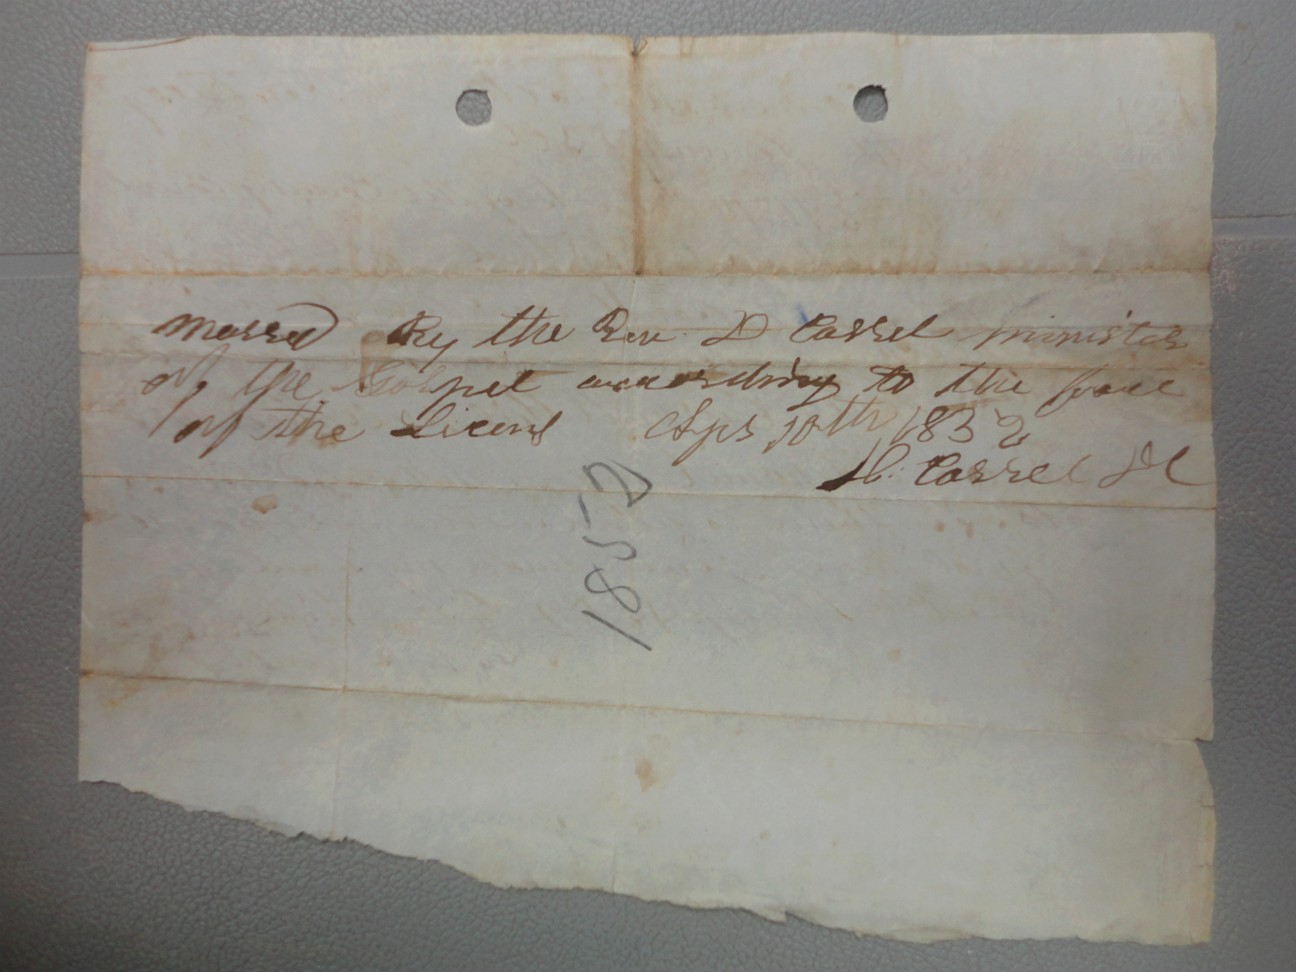 Marred By the Rev. D Cassel minister
of the Gospel according to the face
of the Licens Apr 10th 1852
D. Cassel
1852